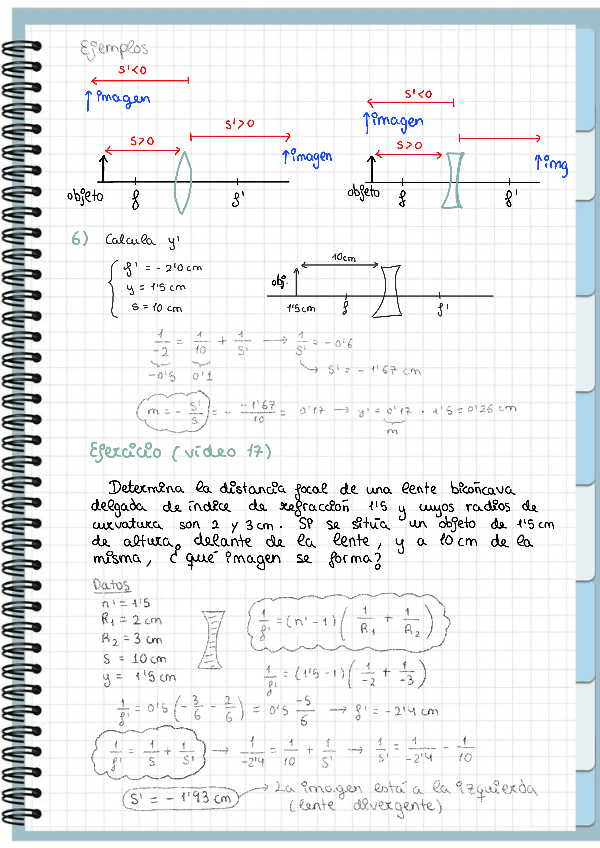 Ejemplos
s'<0
s'<0
↑imagen
s'>0
↑imagen
s>0
↑imagen
s>0
↑img
objeto
f
f'
objeto
f
f'
6) Calcula y'
f' = -2'0 cm
y = 1'5 cm
s = 10 cm
10cm
obj.
1'5cm
f
f'
1/-2 = 1/10 + 1/s' → 1/s' = -0'6
-0'5 0'1
↳ s' = -1'67 cm
m = - s'/s = - -1'67/10 = 0'17 → y' = 0'17 · 1'5 = 0'26 cm
m
Ejercicio (vídeo 17)
Determina la distancia focal de una lente bicóncava
delgada de índice de refracción 1'5 y cuyos radios de
curvatura son 2 y 3 cm. Si se sitúa un objeto de 1'5 cm
de altura, delante de la lente, y a 10 cm de la
misma, ¿qué imagen se forma?
Datos
n' = 1'5
R₁ = 2 cm
R₂ = 3 cm
s = 10 cm
y = 1'5 cm
1/f' = (n'-1) (1/R₁ + 1/R₂)
1/f' = (1'5-1) (1/-2 + 1/-3)
1/f' = 0'5 (-3/6 - 2/6) = 0'5 -5/6 → f' = -2'4 cm
1/f' = 1/s + 1/s' → 1/-2'4 = 1/10 + 1/s' → 1/s' = 1/-2'4 - 1/10
s' = -1'93 cm → La imagen está a la izquierda
(lente divergente)